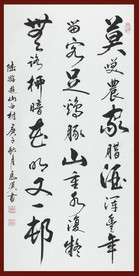 莫笑農家臘酒渾豐年
留客足鷄豚山重水複疑
無路柳暗花明又一邨
陸游遊山西村庚子秋月書